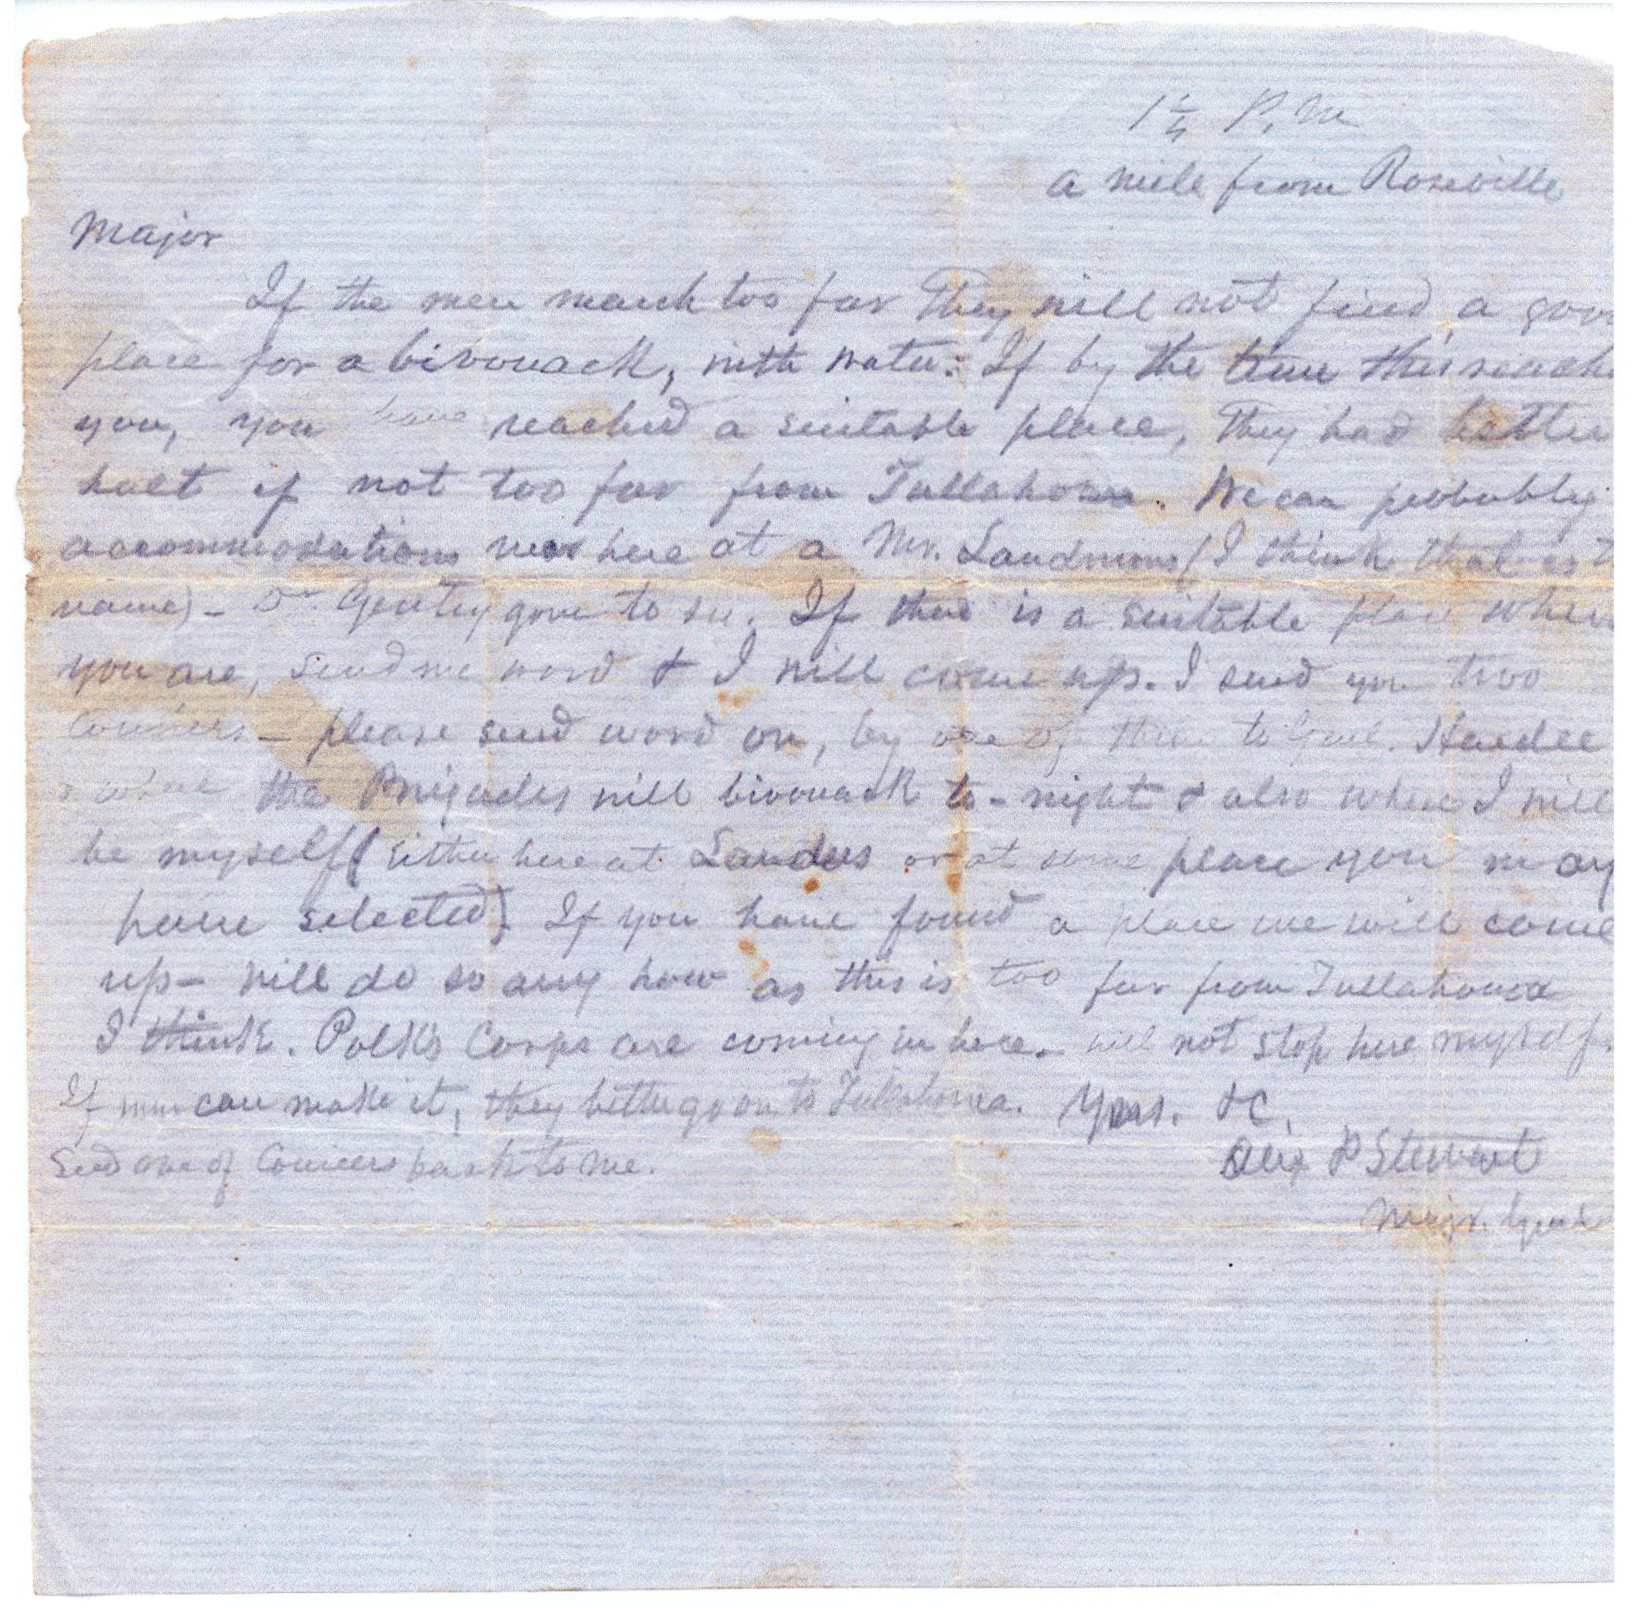 1 1/4 P. M
a mile from Roseville
Major
If the men march too far They will not find a goo
place for a bivouack, with water. If by the time this reach
you, you have reached a suitable place, They had better
halt if not too far from Tullahoma. We can probably
accommodations near here at a Mr. Landmans (I think that is t
name) - Dr. Gentry gone to see. If there is a suitable place wher
you are, send me word & I will come up. I send you two
Couriers - please send word on, by one of them to Genl. Hardee
where the Brigades will bivouack to-night & also where I will
be myself (either here at Landers or at some place you may
have selected) If you have found a place we will come
up - will do so any how as this is too far from Tullahoma
I think. Polk's Corps are coming in here. - will not stop here myself.
If men can make it, they better go on to Tullahoma. Yours. &C.
Send one of Couriers back to me.
Alex P Stewart
Major. Genl